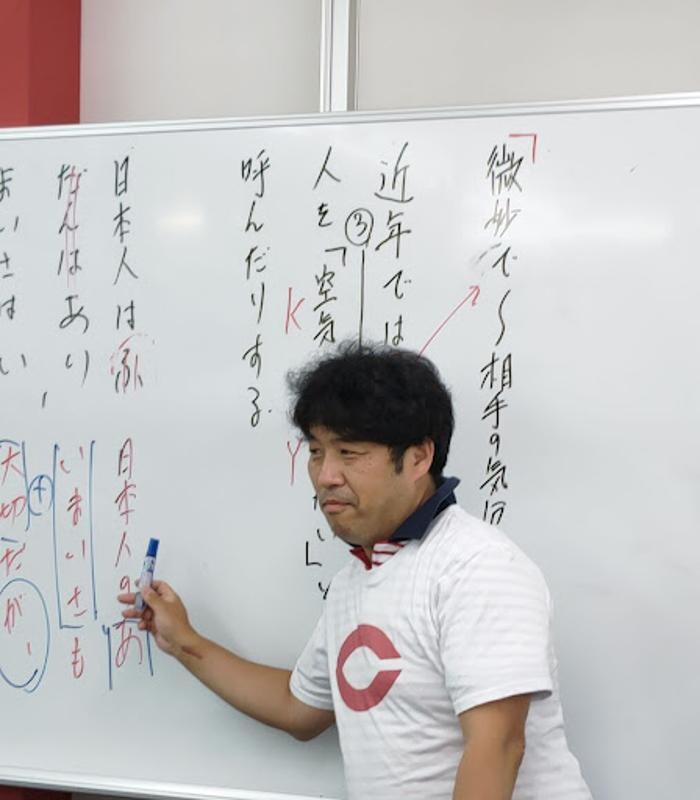 「微妙で〜相手の気
近年では
③
人を「空気
K
Y
呼んだりする。
日本人は
日本人のあ
だんはあり、
いまいさも
まいさはい
＋
大切だが、
C